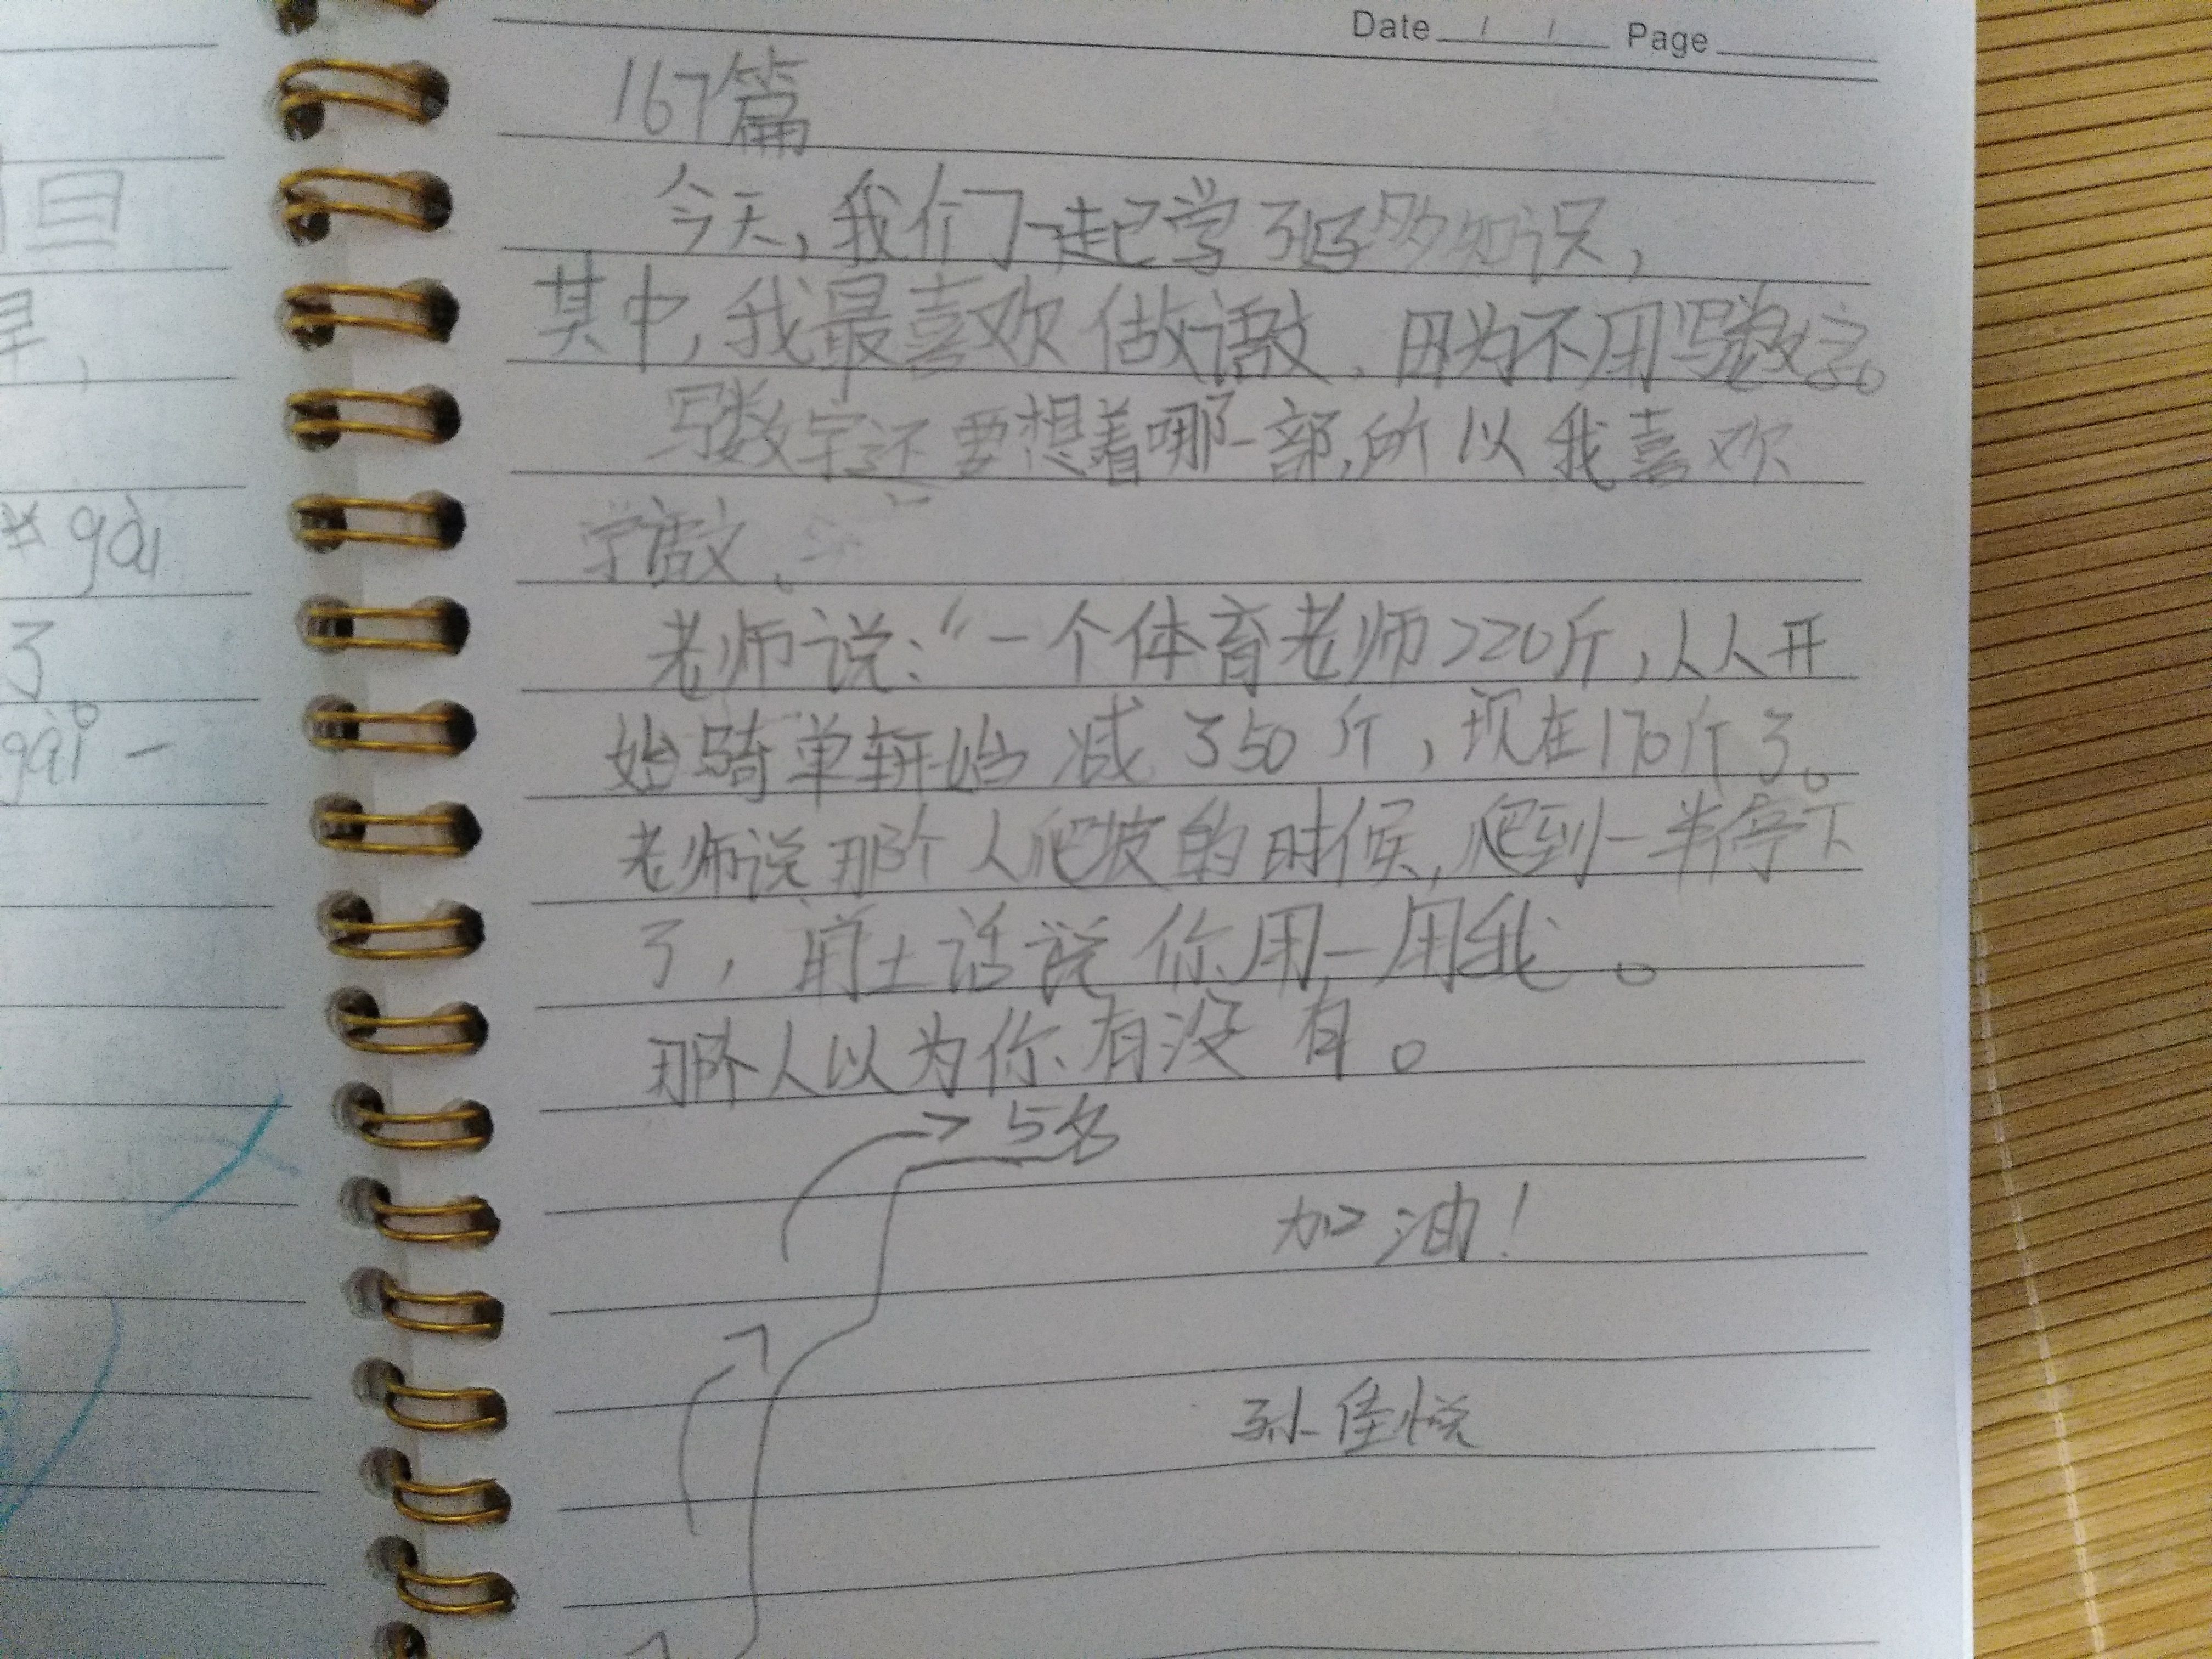 Date / / Page
167篇
今天，我们一起学了好多知识，
其中，我最喜欢做语文，因为不用写数字。
写数字还要想着哪一部，所以我喜欢
学语文。
老师说：“一个体育老师220斤，从人开
始骑单车开始减了50斤，现在170斤了。
老师说那个人爬坡的时候，爬到一半停下
了，用土话说你用一用我。
那个人以为你有没有。
5名
加油！
孙佳悦
旦
旱，
gài
了
gài 一